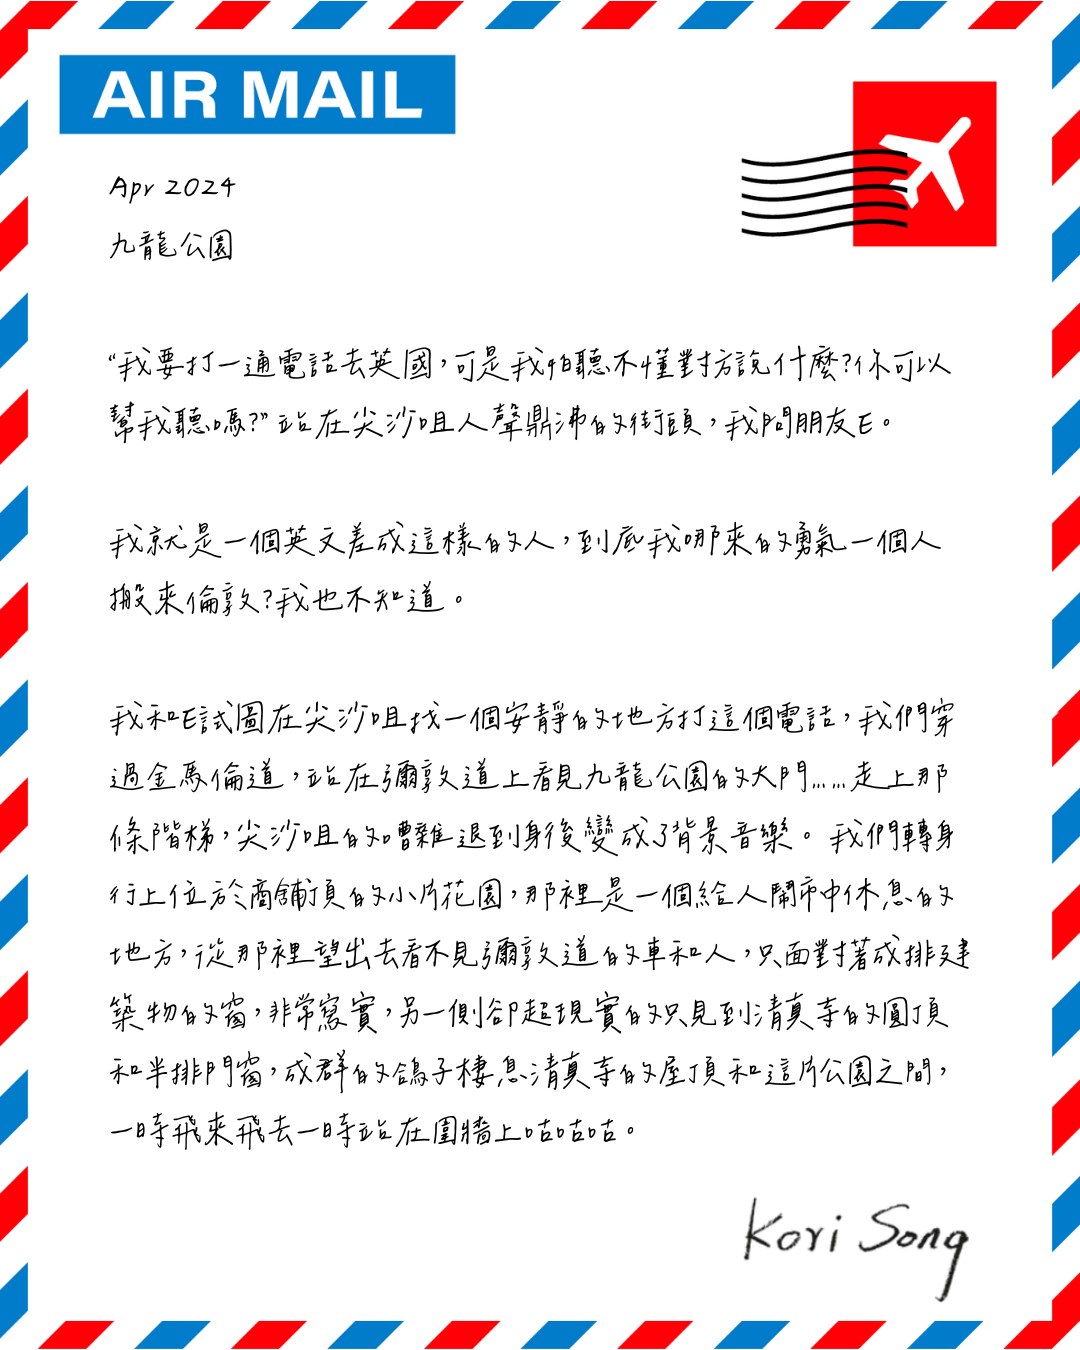 AIR MAIL
Apr 2024
九龍公園
“我要打一通電話去英國，可是我怕聽不懂對方說什麼?你可以
幫我聽嗎?”站在尖沙咀人聲鼎沸的街頭，我問朋友E。
我就是一個英文差成這樣的人，到底我哪來的勇氣一個人
搬來倫敦?我也不知道。
我和E試圖在尖沙咀找一個安靜的地方打這個電話，我們穿
過金馬倫道，站在彌敦道上看見九龍公園的大門……走上那
條階梯，尖沙咀的嘈雜退到身後變成了背景音樂。我們轉身
行上位於商舖頂的小片花園，那裡是一個給人鬧市中休息的
地方，從那裡望出去看不見彌敦道的車和人，只面對著成排建
築物的窗，非常寫實，另一側卻超現實的只見到清真寺的圓頂
和半排門窗，成群的鴿子棲息清真寺的屋頂和這片公園之間，
一時飛來飛去一時站在圍牆上咕咕咕。
Kori Song